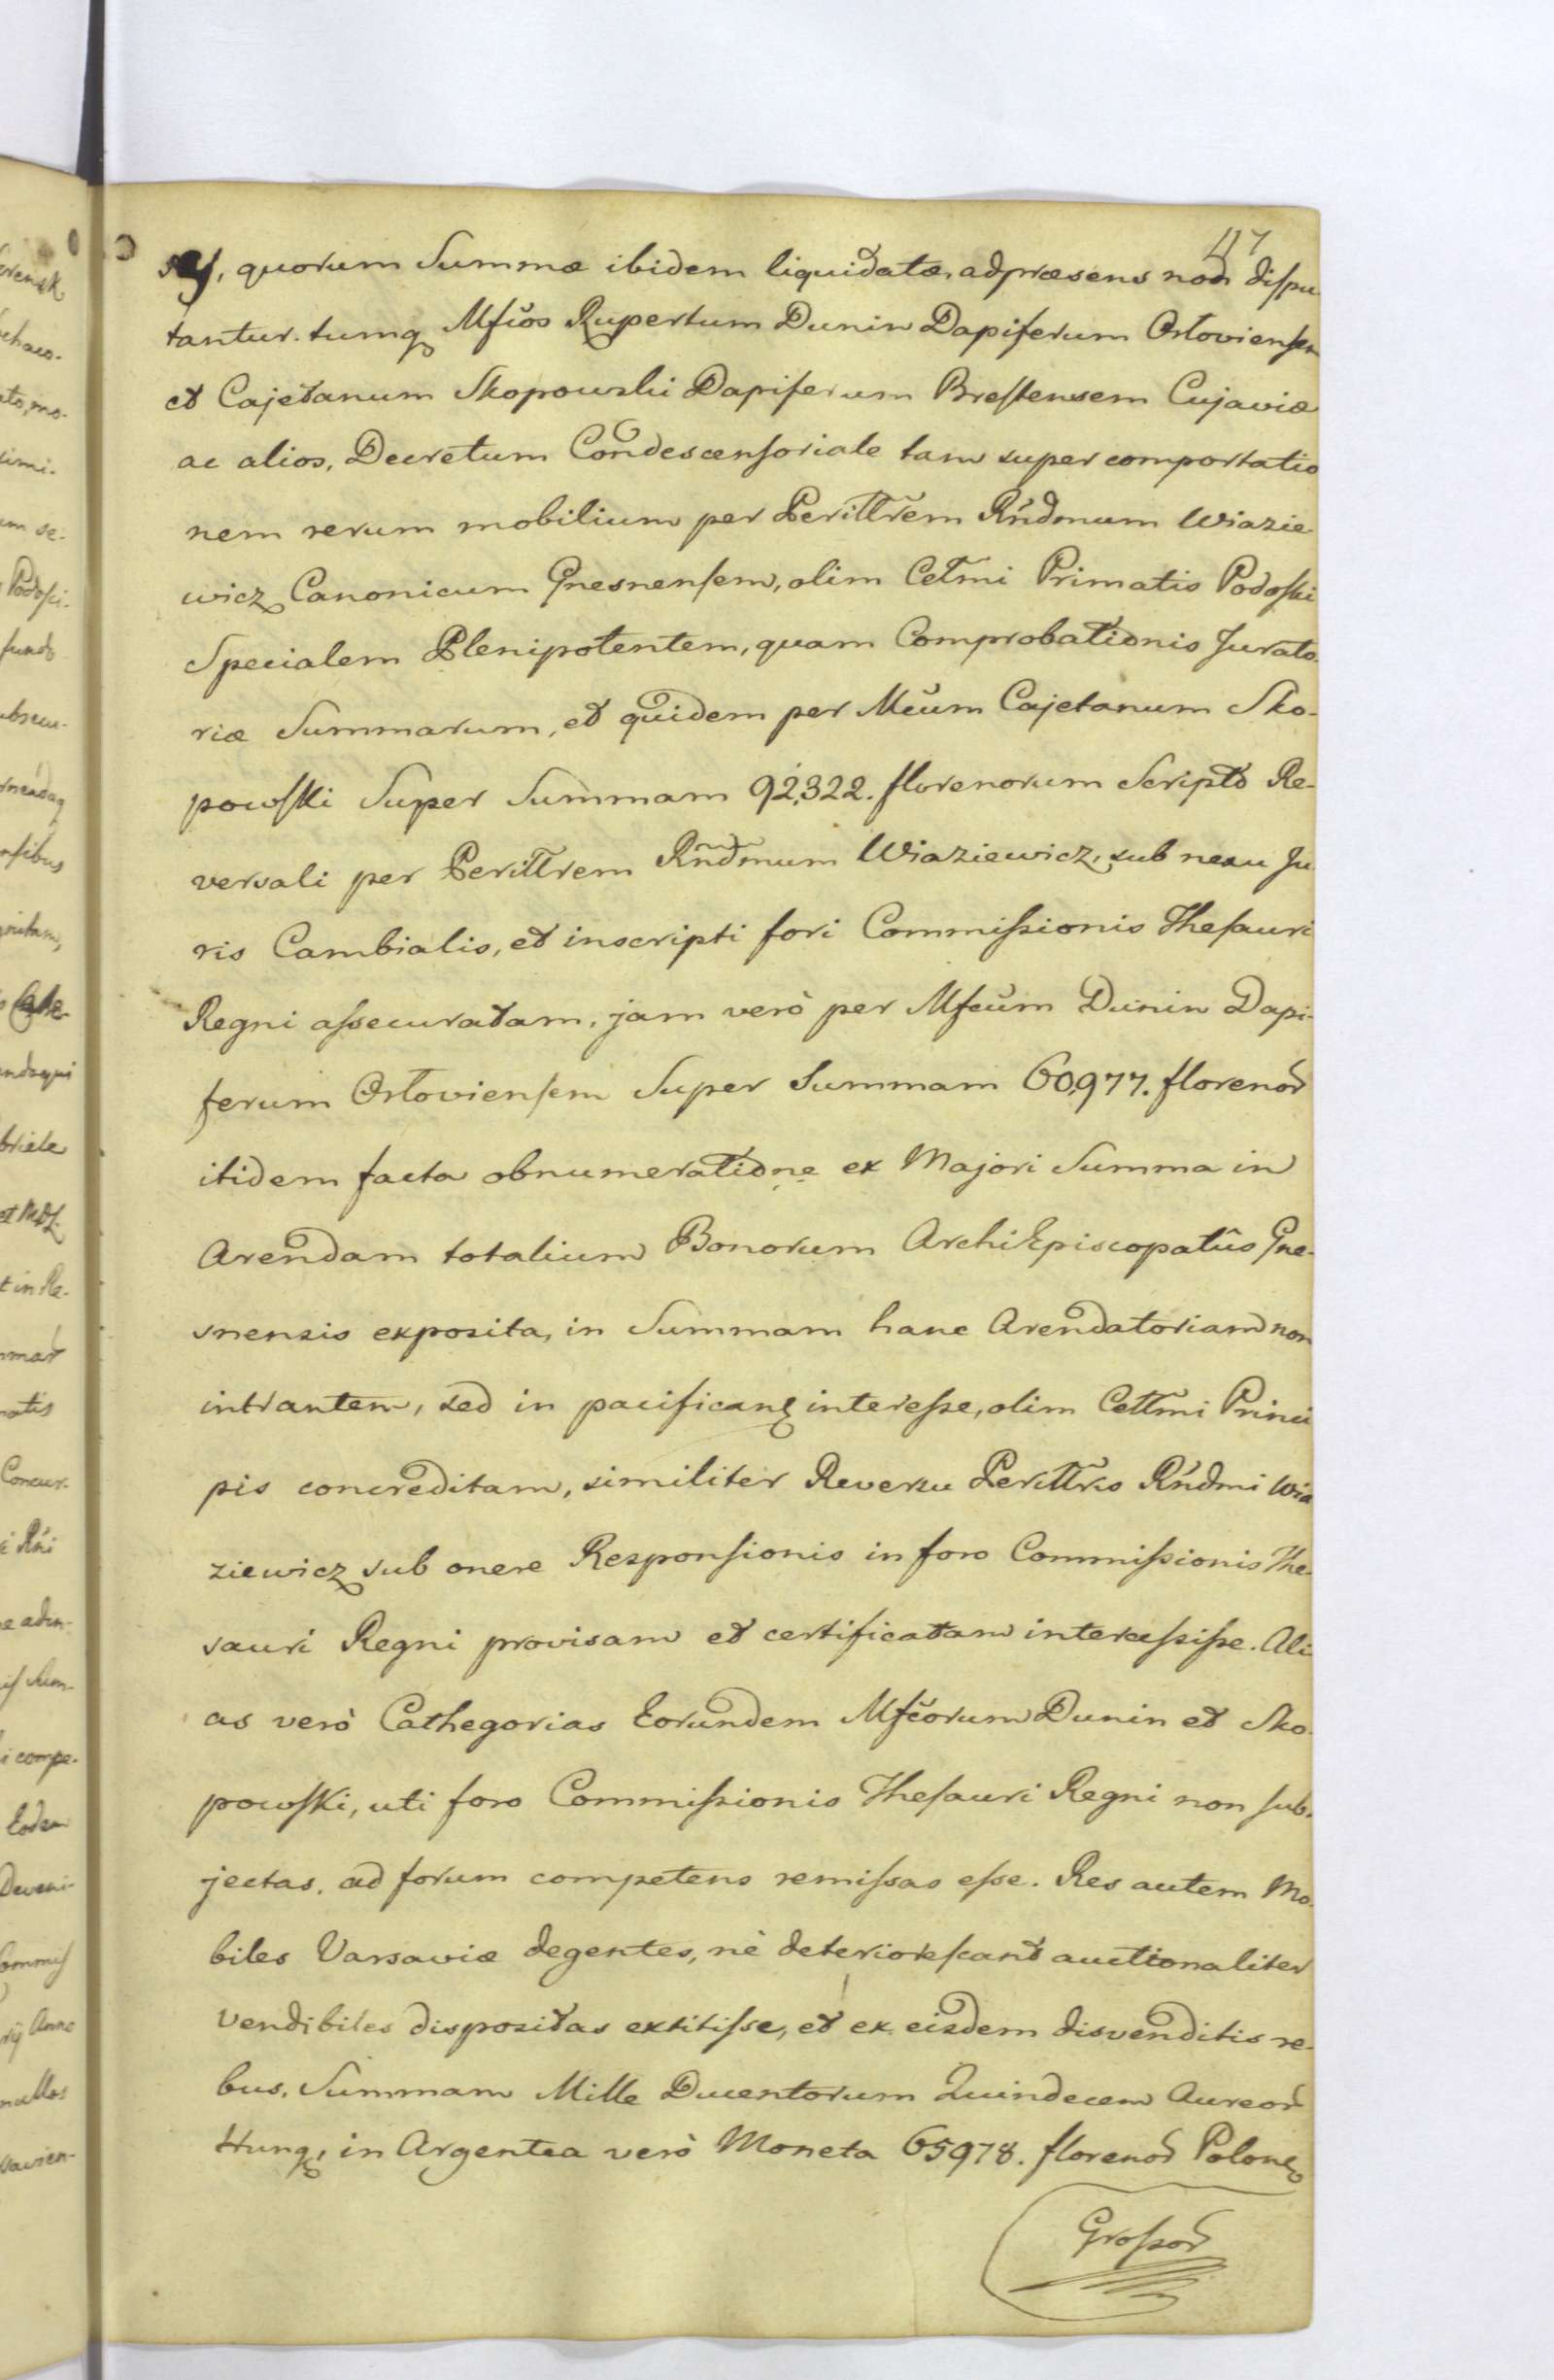 47
sey, quorum Summæ ibidem liquidatæ, adpræsens non dispu
tantur. tumq Mfĉos Rupertum Dunin Dapiferum Orłoviensem
et Cajetanum Skopowski Dapiferum Brestensem Cujaviæ
ac alios, Decretum Condescensoriale tam super comportatio
nem rerum mobilium per Perillr̃em Rñdmum Wiazie
wicz Canonicum Gnesnensem, olim Cel̃mi Primatis Podoski
Specialem Plenipotentem, quam Comprobationis Jurato
riæ Summarum, et quidem per Mcũm Cajetanum Sko-
powski Super Summam 92,322. florenorum Scripto Re-
versali per Perillr̃em Rñdmum Wiaziewicz, sub nexu Ju
ris Cambialis, et inscripti fori Commissionis Thesauri
Regni assecuratam, jam verò per Mfcũm Dunin Dapi-
ferum Orłoviensem Super Summam 60,977. florenor
itidem facta obnumeratione ex Majori Summa in
Arendam totalium Bonorum ArchiEpiscopatûs Gne-
snensis exposita, in Summam hanc Arendatoriam non
intrantem, sed in pacificanq interesse, olim Cell̃mi Princi
pis concreditam, similiter Reversu Perillr̃is Rñdmi Wia
ziewicz sub onere Responsionis in foro Commissionis The-
sauri Regni provisam et certificatam intercessisse. Ali
as verò Cathegorias Eorundem Mfĉorum Dunin et Sko
powski, uti foro Commissionis Thesauri Regni non sub-
jectas, ad forum competens remissas esse. Res autem Mo
biles Varsaviæ degentes, nè deteriorescant auctionaliter
vendibiles dispositas extitisse, et ex eisdem disvenditis re-
bus, Summam Mille Ducentorum Quindecem Aureor
Hung, in Argentea verò Moneta 65978. florenor Polonq
Grossor